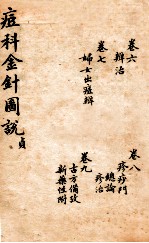 痘科金針圖說
貞
卷六
辨治
卷七
婦女出痘辨
卷八
疹痧門
總論
疹治
卷九
古方備攷
新藥性附